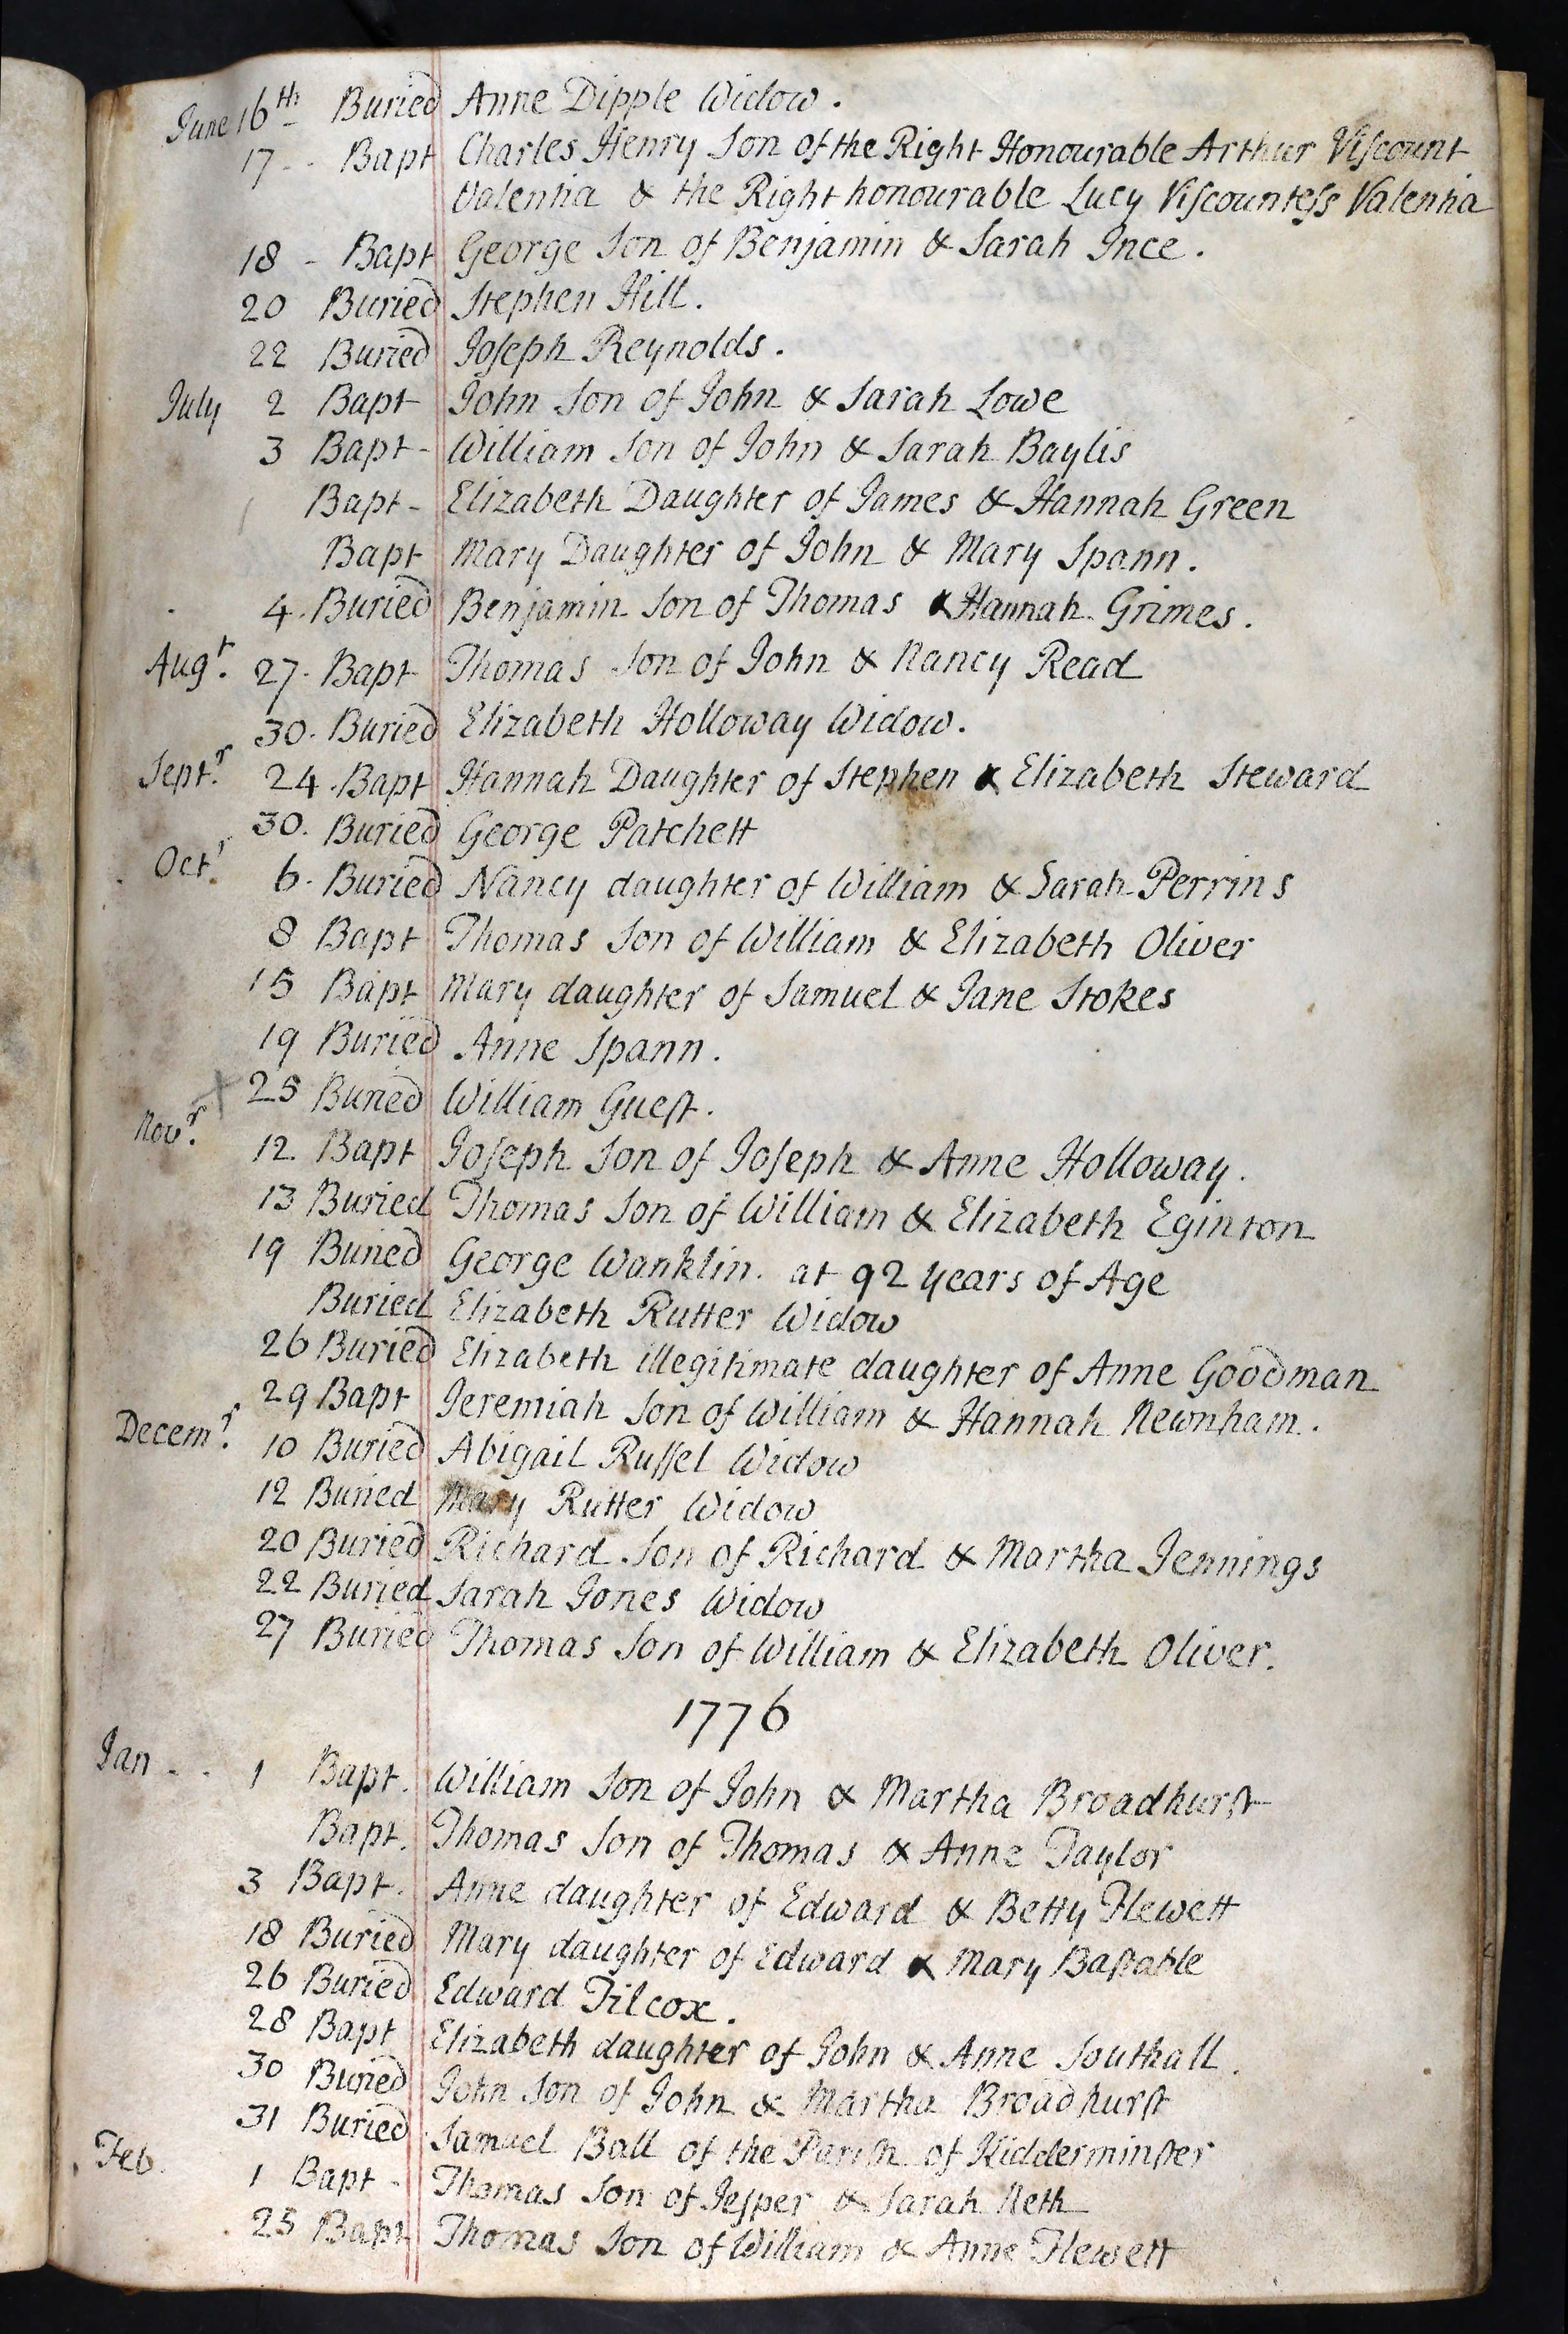 June 16th Buried Anne Dipple Widow.
17 - Bapt Charles Henry Son of the Right Honourable Arthur Viſcount
Valentia & the Right honourable Lucy Viſcounteſs Valentia
18 - Bapt George Son of Benjamin & Sarah Ince.
20 Buried Stephen Hill.
22 Buried Joſeph Reynolds.
July 2 Bapt John Son of John & Sarah Lowe
3 Bapt - William Son of John & Sarah Baylis
Bapt - Elizabeth Daughter of James & Hannah Green
Bapt Mary Daughter of John & Mary Spann.
4. Buried Benjamin Son of Thomas & Hannah Grimes.
Augt. 27. Bapt Thomas Son of John & Nancy Read
30. Buried Elizabeth Holloway Widow.
Septr. 24. Bapt Hannah Daughter of Stephen & Elizabeth Steward
30. Buried George Patchett
Octr. 6. Buried Nancy daughter of William & Sarah Perrins
8 Bapt Thomas Son of William & Elizabeth Oliver
15 Bapt Mary daughter of Samuel & Jane Stokes
19 Buried Anne Spann.
25 Buried William Gueſt.
Novr. 12. Bapt Joſeph Son of Joſeph & Anne Holloway.
13 Buried Thomas Son of William & Elizabeth Eginton
19 Buried George Wanklin. at 92 years of Age
Buried Elizabeth Rutter Widow
26 Buried Elizabeth illegitimate daughter of Anne Goodman
29 Bapt Jeremiah Son of William & Hannah Newnham.
Decemr. 10 Buried Abigail Ruſſel Widow
12 Buried Mary Rutter Widow
20 Buried Richard Son of Richard & Martha Jennings
22 Buried Sarah Jones Widow
27 Buried Thomas Son of William & Elizabeth Oliver.
1776
Jan - - 1 Bapt. William Son of John & Martha Broadhurſt
Bapt. Thomas Son of Thomas & Anne Taylor
3 Bapt. Anne daughter of Edward & Betty Flewett
18 Buried Mary daughter of Edward & Mary Baſtable
26 Buried Edward Tilcox.
28 Bapt Elizabeth daughter of John & Anne Southall.
30 Buried John Son of John & Martha Broadhurſt
31 Buried Samuel Ball of the Pariſh of Kidderminſter
Feb. 1 Bapt - Thomas Son of Jeſper & Sarah Neth
25 Bapt Thomas Son of William & Anne Flewett